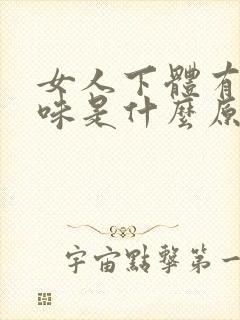 女人下體有
味是什麼原
宇宙點擊第一